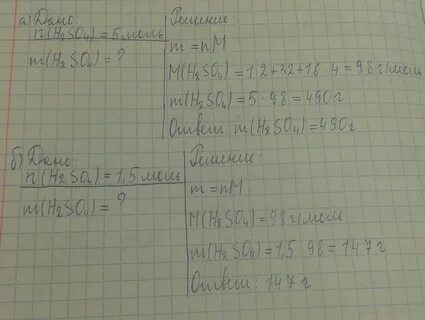 а) Дано:
n(H2SO4) = 5 моль
m(H2SO4) = ?
Решение
m = nM
M(H2SO4) = 1·2+32+16·4 = 98 г/моль
m(H2SO4) = 5·98 = 490 г
Ответ: m(H2SO4) = 490 г
б) Дано:
n(H2SO4) = 1,5 моль
m(H2SO4) = ?
Решение:
m = nM
M(H2SO4) = 98 г/моль
m(H2SO4) = 1,5·98 = 147 г
Ответ: 147 г